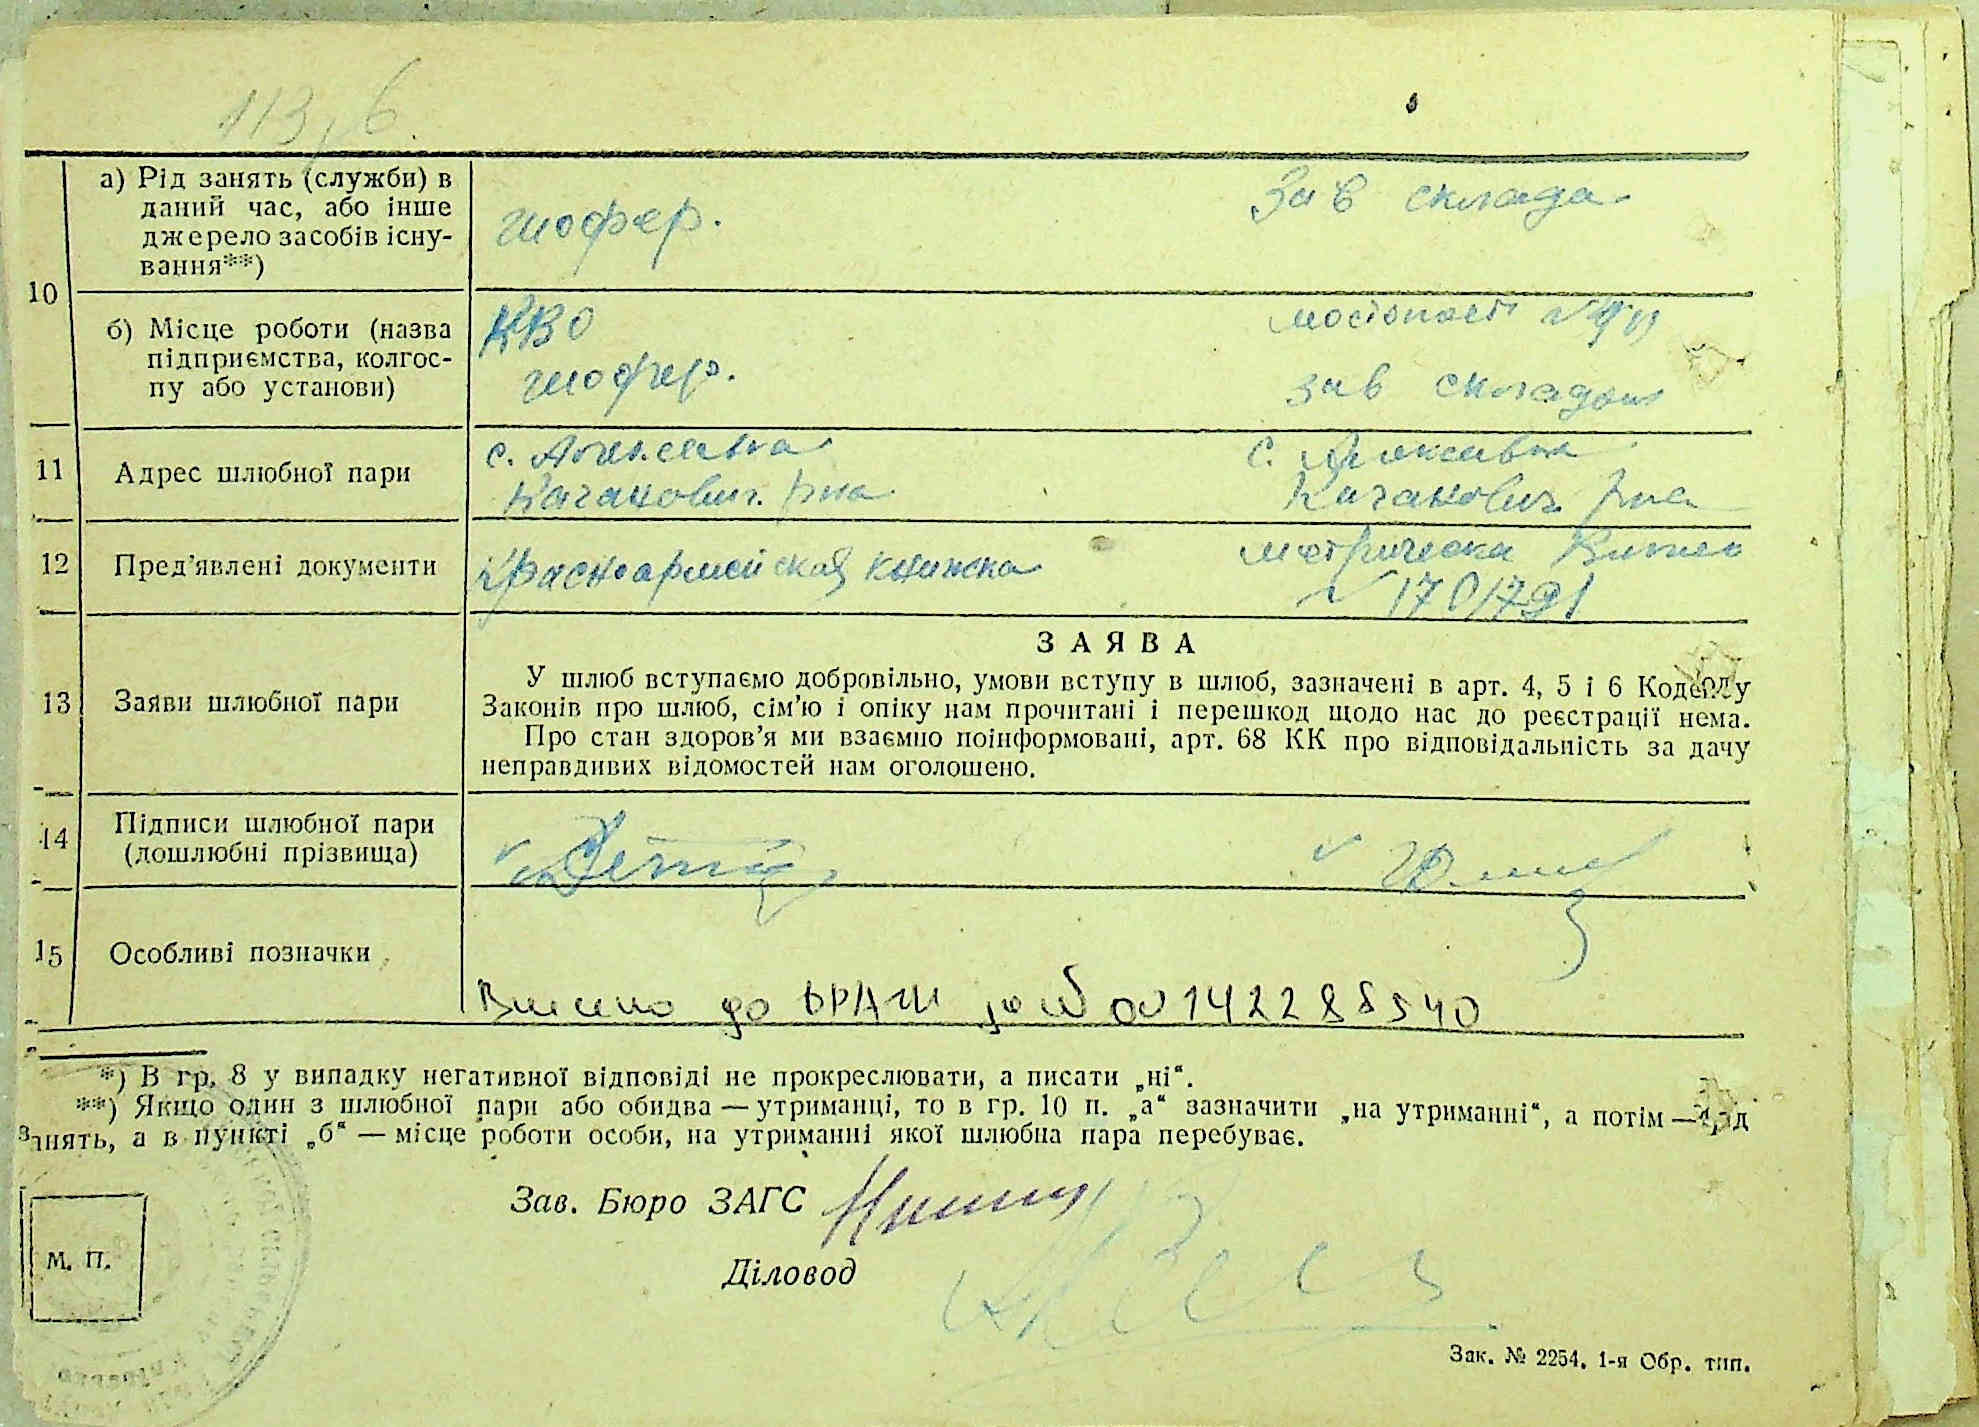 а) Рід занять (службы) в
даний час, або інше
джерело засобів існу-
вання**)
шофер.
Зав склада
10
б) Місце роботи (назва
підприємства, колгос-
пу або установи)
КВО
шофер.
зав складом
11
Адрес шлюбної пари
с.
Качанович. р-на
с.
Качанович р-на
12
Пред'явлені документи
Красноармейская книжка
метрическа
13
Заяви шлюбної пари
ЗАЯВА
У шлюб вступаємо добровільно, умови вступу в шлюб, зазначені в арт. 4, 5 і 6 Кодексу
Законів про шлюб, сім'ю і опіку нам прочитані і перешкод щодо нас до реєстрації нема.
Про стан здоров'я ми взаємно поінформовані, арт. 68 КК про відповідальність за дачу
неправдивих відомостей нам оголошено.
14
Підписи шлюбної пари
(дошлюбні прізвища)
15
Особливі позначки
Внесено до ДРАЦС за № 00142288540
*) В гр. 8 у випадку негативної відповіді не прокреслювати, а писати „ні“.
**) Якщо один з шлюбної пари або обидва — утриманці, то в гр. 10 п. „а“ зазначити „на утриманні“, а потім — рід
занять, а в пункті „б“ — місце роботи особи, на утриманні якої шлюбна пара перебуває.
Зав. Бюро ЗАГС
Діловод
М. П.
Зак. № 2254. 1-я Обр. тип.